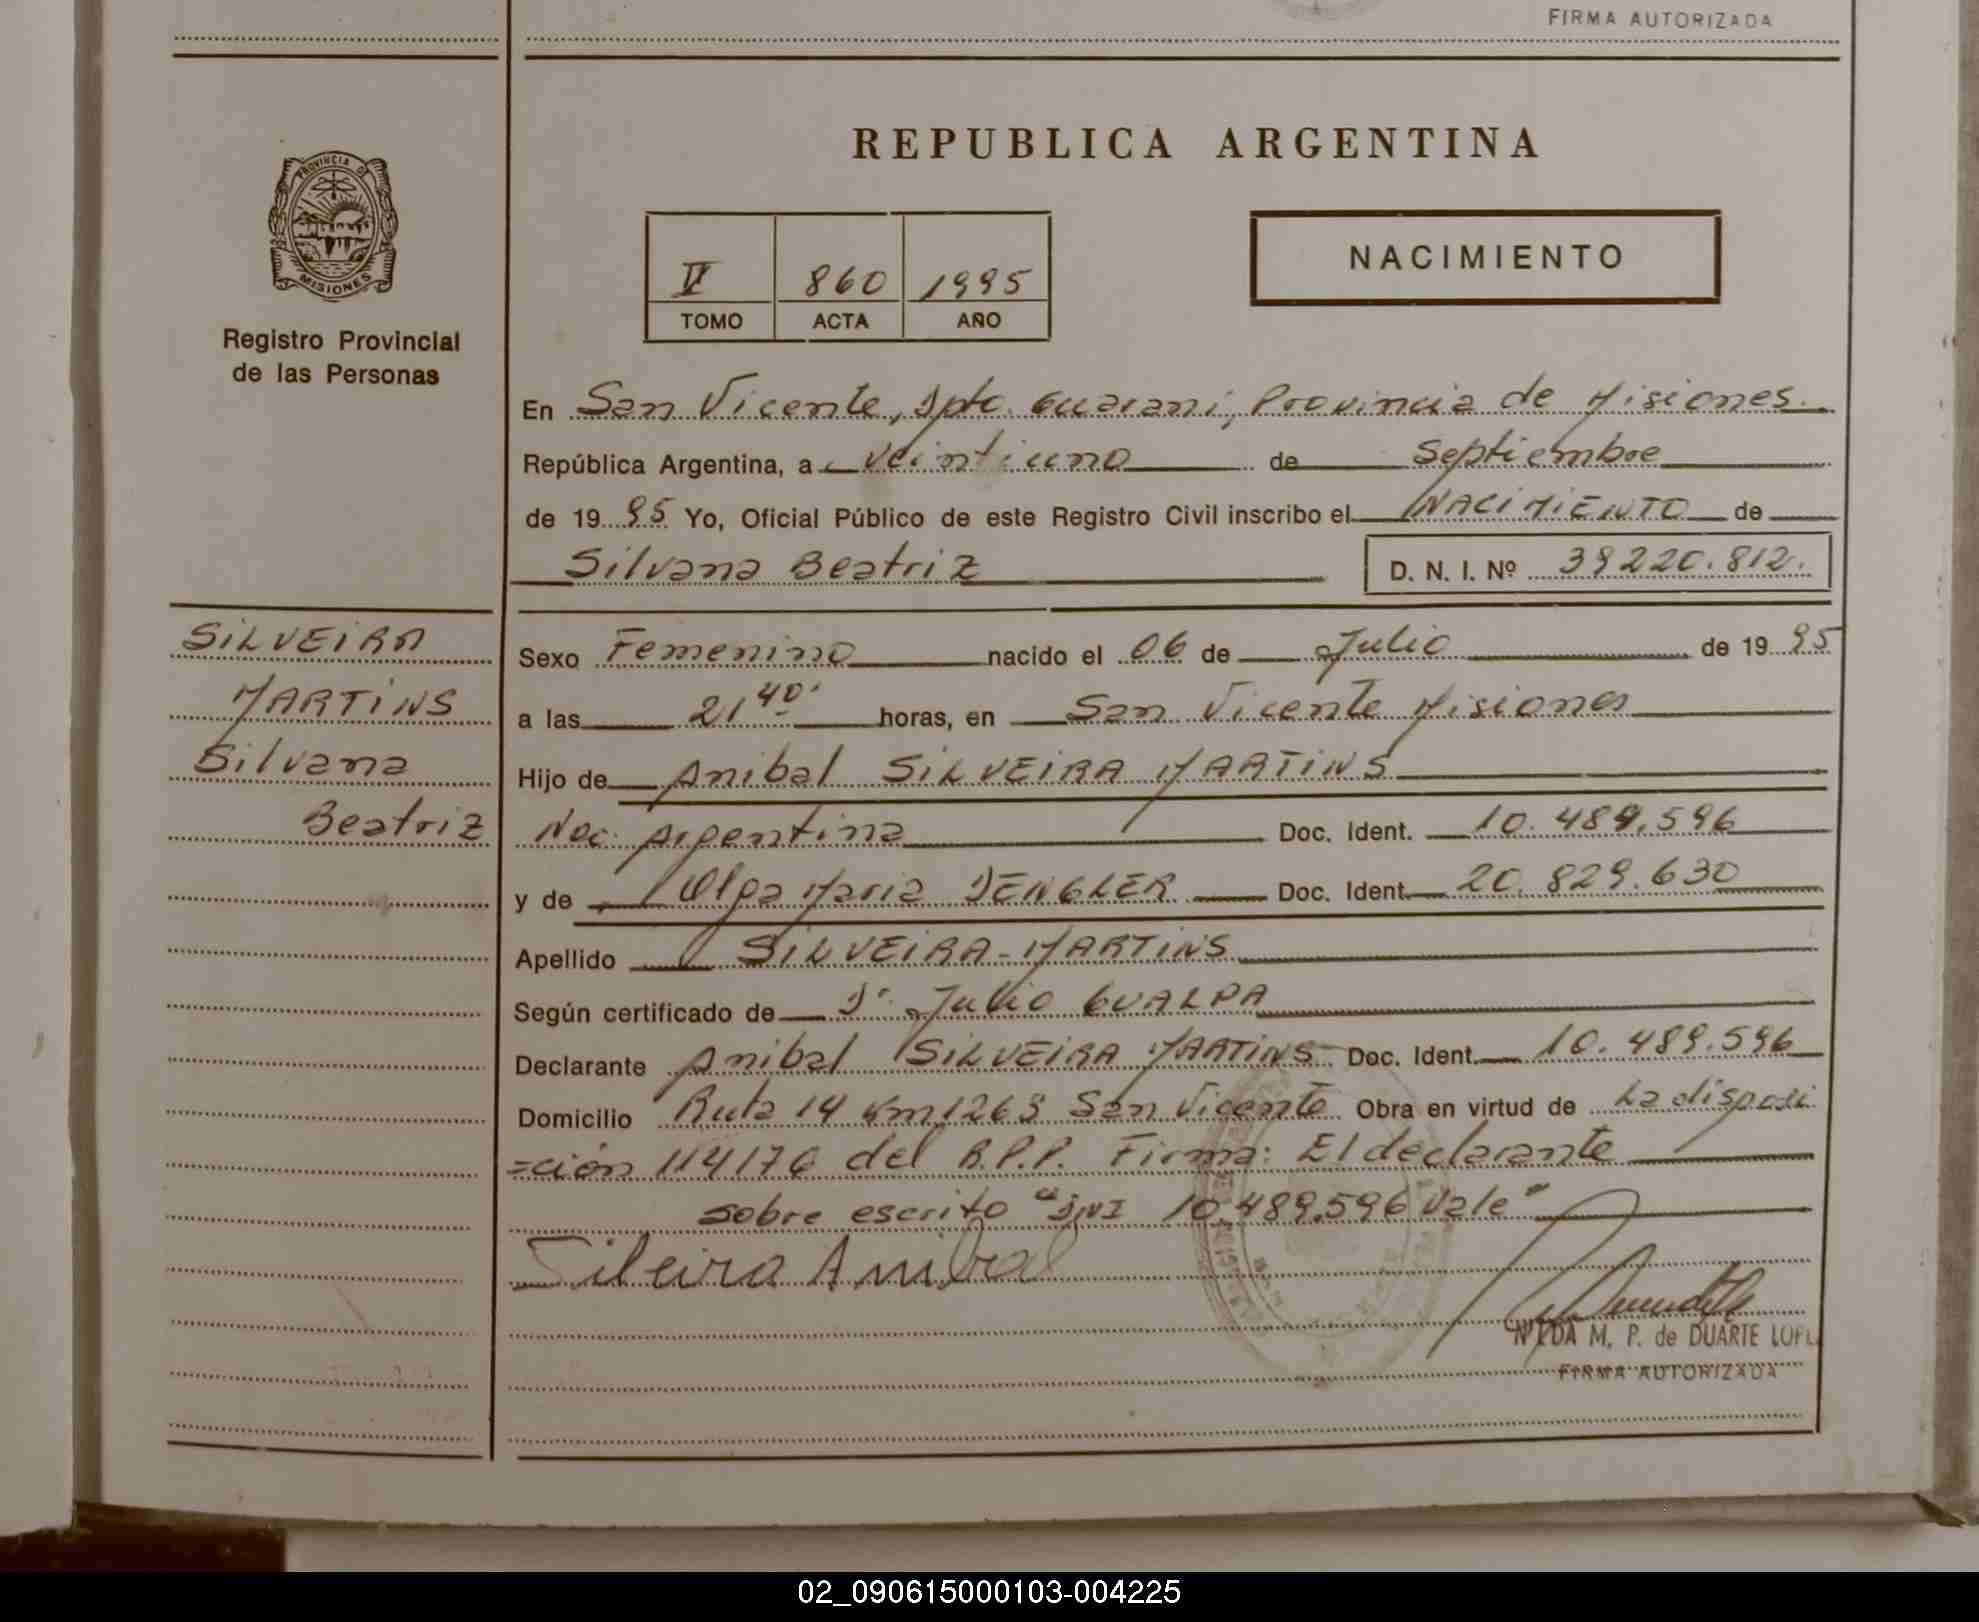 FIRMA AUTORIZADA
REPUBLICA ARGENTINA
PROVINCIA DE
MISIONES
Registro Provincial
de las Personas
NACIMIENTO
860 1995
TOMO ACTA AÑO
En San Vicente, Dpto. Guarani, Provincia de Misiones.
República Argentina, a veintiuno de Septiembre
de 1995 Yo, Oficial Público de este Registro Civil inscribo el NACIMIENTO de
Silvana Beatriz D. N. I. Nº 39220.812.
SILVEIRA
MARTINS
Silvana
Beatriz
Sexo Femenino nacido el 06 de Julio de 1995
a las 21 40' horas, en San Vicente Misiones
Hijo de Anibal SILVEIRA MARTINS
Nac. Argentina Doc. Ident. 10.489.596
y de Olga Maria DENGLER Doc. Ident. 20.829.630
Apellido SILVEIRA-MARTINS
Según certificado de Dr. Julio GUALPA
Declarante Anibal SILVEIRA MARTINS Doc. Ident. 10.489.596
Domicilio Ruta 14 Km 1263 San Vicente Obra en virtud de La disposi
=ción 114176 del R.P.P. Firma: El declarante
sobre escrito "DNI 10.489.596 Vale"
Sileira Anibal
NILDA M. P. de DUARTE
FIRMA AUTORIZADA
02_090615000103-004225